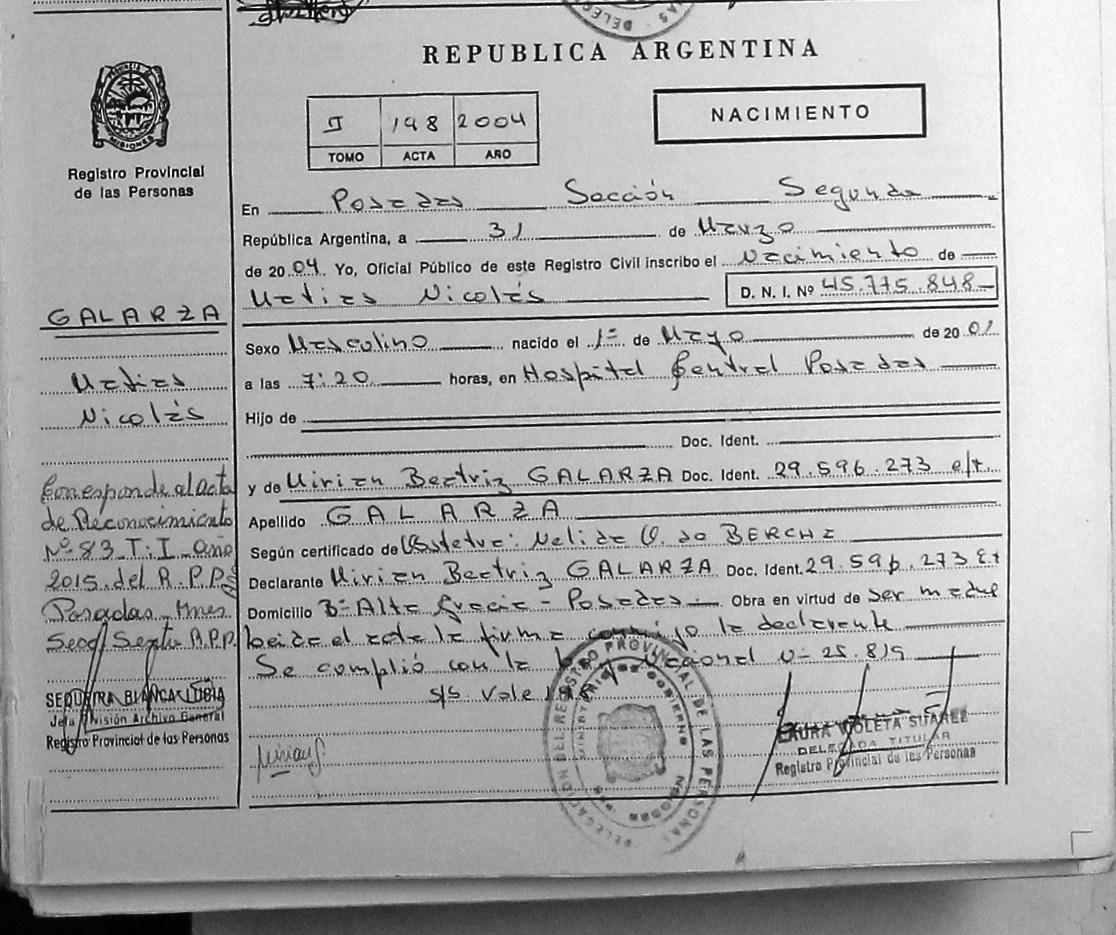 REPUBLICA ARGENTINA
PROVINCIA DE
MISIONES
Registro Provincial
de las Personas
I 198 2004
TOMO ACTA AÑO
NACIMIENTO
En Posadas Sección Segunda
República Argentina, a 31 de Marzo
de 2004 Yo, Oficial Público de este Registro Civil inscribo el Nacimiento de
Matias Nicolás D. N. I. Nº 45.775.848
Sexo Masculino nacido el 1º de Mayo de 2001
a las 7:20 horas, en Hospital Central Posadas
Hijo de
Doc. Ident.
y de Mirian Beatriz GALARZA Doc. Ident. 29.596.273
Apellido GALARZA
Según certificado de Obstetra: Nelida de
Declarante Mirian Beatriz GALARZA Doc. Ident. 29.596.273
Domicilio Bº Alta Gracia - Posadas. Obra en virtud de ser madre
leida el acta la firma conmigo la declarante
Se cumplió con la Nacional Nº 25.819
s/s. Vale
GALARZA
Matias
Nicolás
Corresponde al Acta
de Reconocimiento
Nº 83 T: I año
2015 del R.P.P.
Posadas Mnes
BLANCA LIDIA
Jefa División Archivo General
Registro Provincial de las Personas
DELEGACIÓN DEL REGISTRO PROVINCIAL DE LAS PERSONAS
MINISTERIO DE GOBIERNO
LAURA VIOLETA SUAREZ
DELEGADA TITULAR
Registro Provincial de las Personas